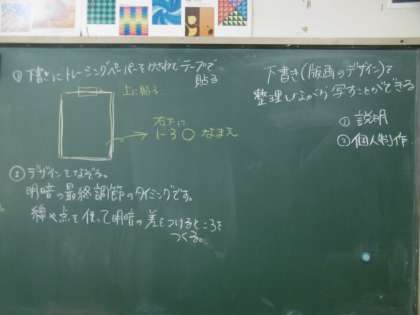 ① 下書きにトレーシングペーパーをかさねてテープで
貼る
上に貼る
右下に
1-3 ○ なまえ
② デザインをなぞる。
明暗の最終調節のタイミングです。
線や点を使って明暗の差をつけるところを
つくる。
下書き(版画のデザイン)を
整理しながら写すことができる
① 説明
② 個人制作